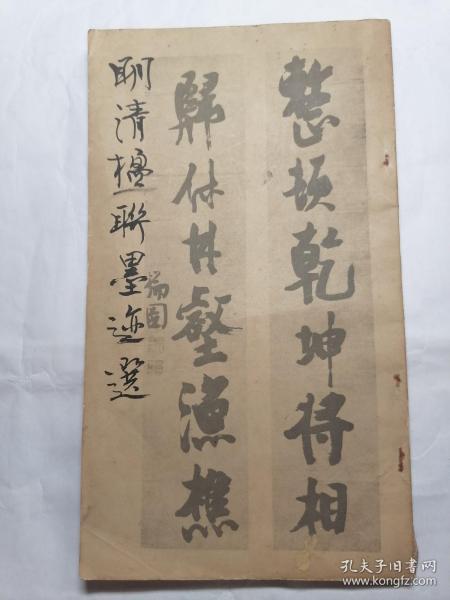 整頓乾坤将相
歸休林壑漁樵
瑞圖
明清楹联墨迹選
孔夫子旧书网
www.kongfz.com